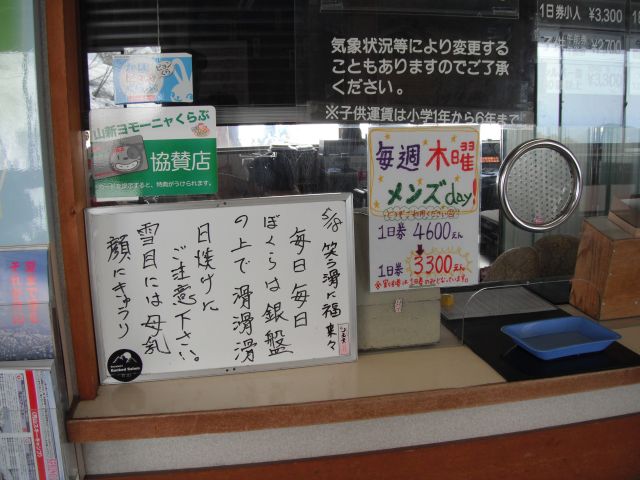 1日券小人 ¥3,300
¥2,700
¥3,300
気象状況等により変更する
こともありますのでご了承
ください。
※子供運賃は小学1年から6年まで
山新ヨモーニャくらぶ
協賛店
カードを提示すると、特典がうけられます。
毎週木曜
メンズday!
1日券 4600えん
1日券 3300えん
5/8 笑う滑に福来々
毎日毎日
ぼくらは銀盤
の上で滑滑滑
日焼けに
ご注意下さい。
雪目には母乳
顔にキュウリ